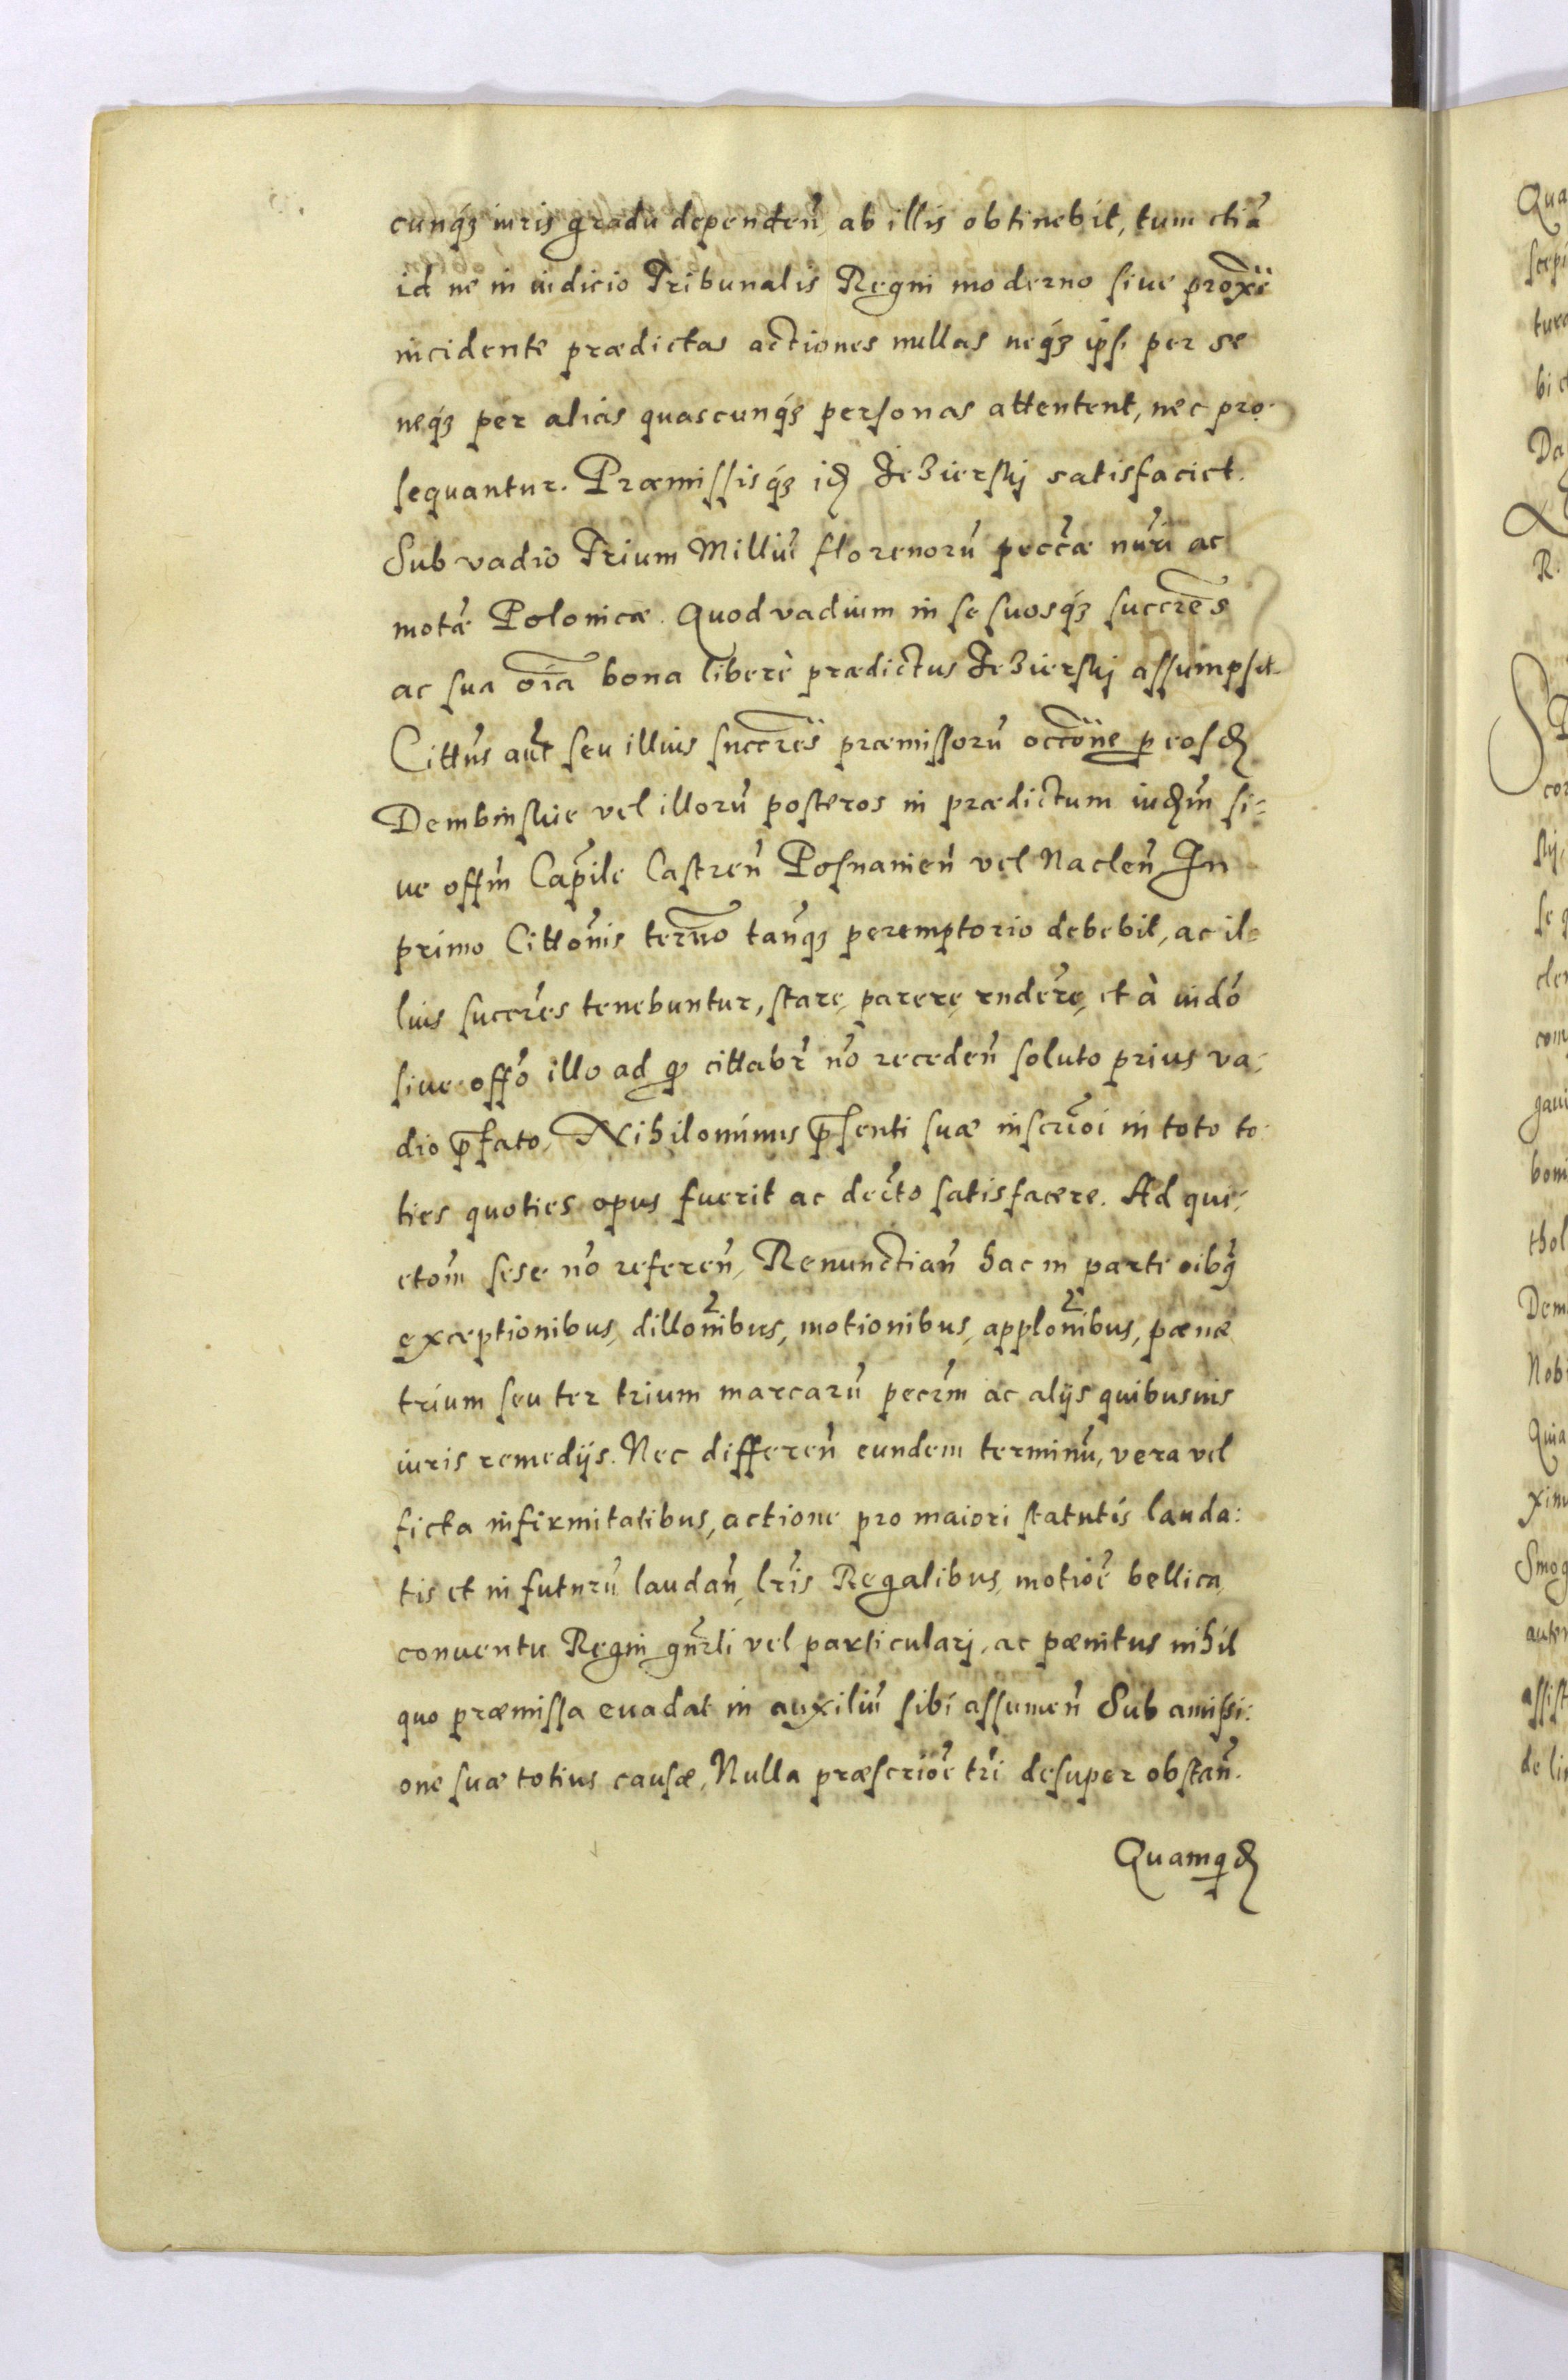 cunq́ꝫ iuris gradu dependeñ, ab illis obtinebit, tum etiā
id ne in iudicio Tribunalis Regni moderno siue prox̃e
incidente prædictas actiones nullas neq́ꝫ ipsi per se
neq́ꝫ per alias quascunq́ꝫ personas attentent, nec pro-
sequantur. Præmissisq́ꝫ id Jezierskj satisfaciet.
Sub vadio Trium Milliū florenorū peccæ̃ nūri ac
motæ̃ Polonicæ. Quod vadium in se suosq́ꝫ succrēs
ac sua oīa bona liberè prædictus Jezierskj assumpsit.
Cittūs aūt seu illius succrēs præmissorū occōne p eosd
Dembinskie vel illorū posteros in prædictum iudm̃ si=
ue offm̃ Capīle Castreñ Posnanieñ vel Nacleñ In
primo Cittonīs termño tanq̄ꝫ peremptorio debebit, ac il=
lius succrēs tenebuntur, stare, parere, rndēre, et à iudō
siue offō illo ad q̄ cittabr̄ nō recedeñ soluto prius va-
dio p̄fato, Nihilominus p̄senti suæ inscrōi in toto to-
ties quoties opus fuerit ac decto satisfacere. Ad qui-
etom̃ sese nō refereñ, Renunctiañ hac in parte oibq̄
exceptionibus, dillonībus, motionibus, applonībus, pænæ
trium seu ter trium marcarū pecrm̃ ac alijs quibusuis
iuris remedijs. Nec differeñ eundem terminū, vera vel
ficta infirmitatibus, actione pro maiori statutis lauda:
tis et in futurū laudañ, lrīs Regalibus, motiōe bellica,
conuentu Regni gnr̄li vel particularj, ac pænitus nihil
quo præmissa euadat in auxiliū sibi assumeñ Sub amissi:
one suæ totius causæ, Nulla præscriōe trī desuper obstañ.
Quamq d